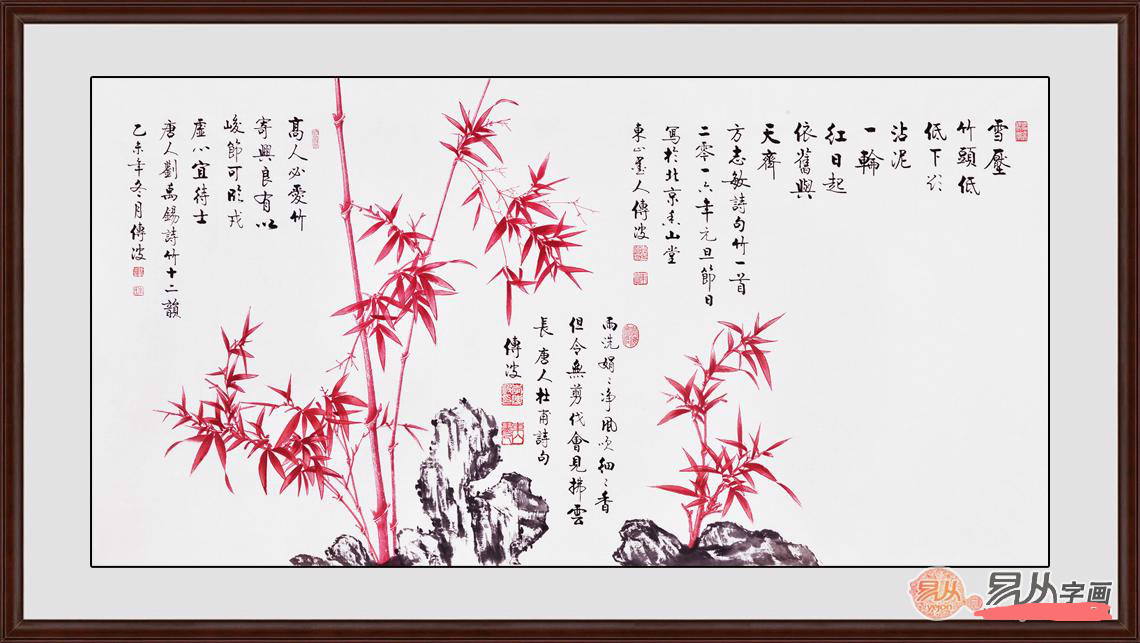 雪壓
竹頭低
低下欲
沾泥
一輪
紅日起
依舊與
天齊
方志敏詩句竹一首
二零一六年元旦節日
寫於北京東山堂
東山墨人傳波
雨洗娟〻淨風吹細〻香
但令無剪伐會見拂雲
長 唐人杜甫詩句
傳波
高人必愛竹
寄興良有以
峻節可臨戎
虛心宜待士
唐人劉禹錫詩竹十二韻
乙未年冬月傳波
易从
易从字画